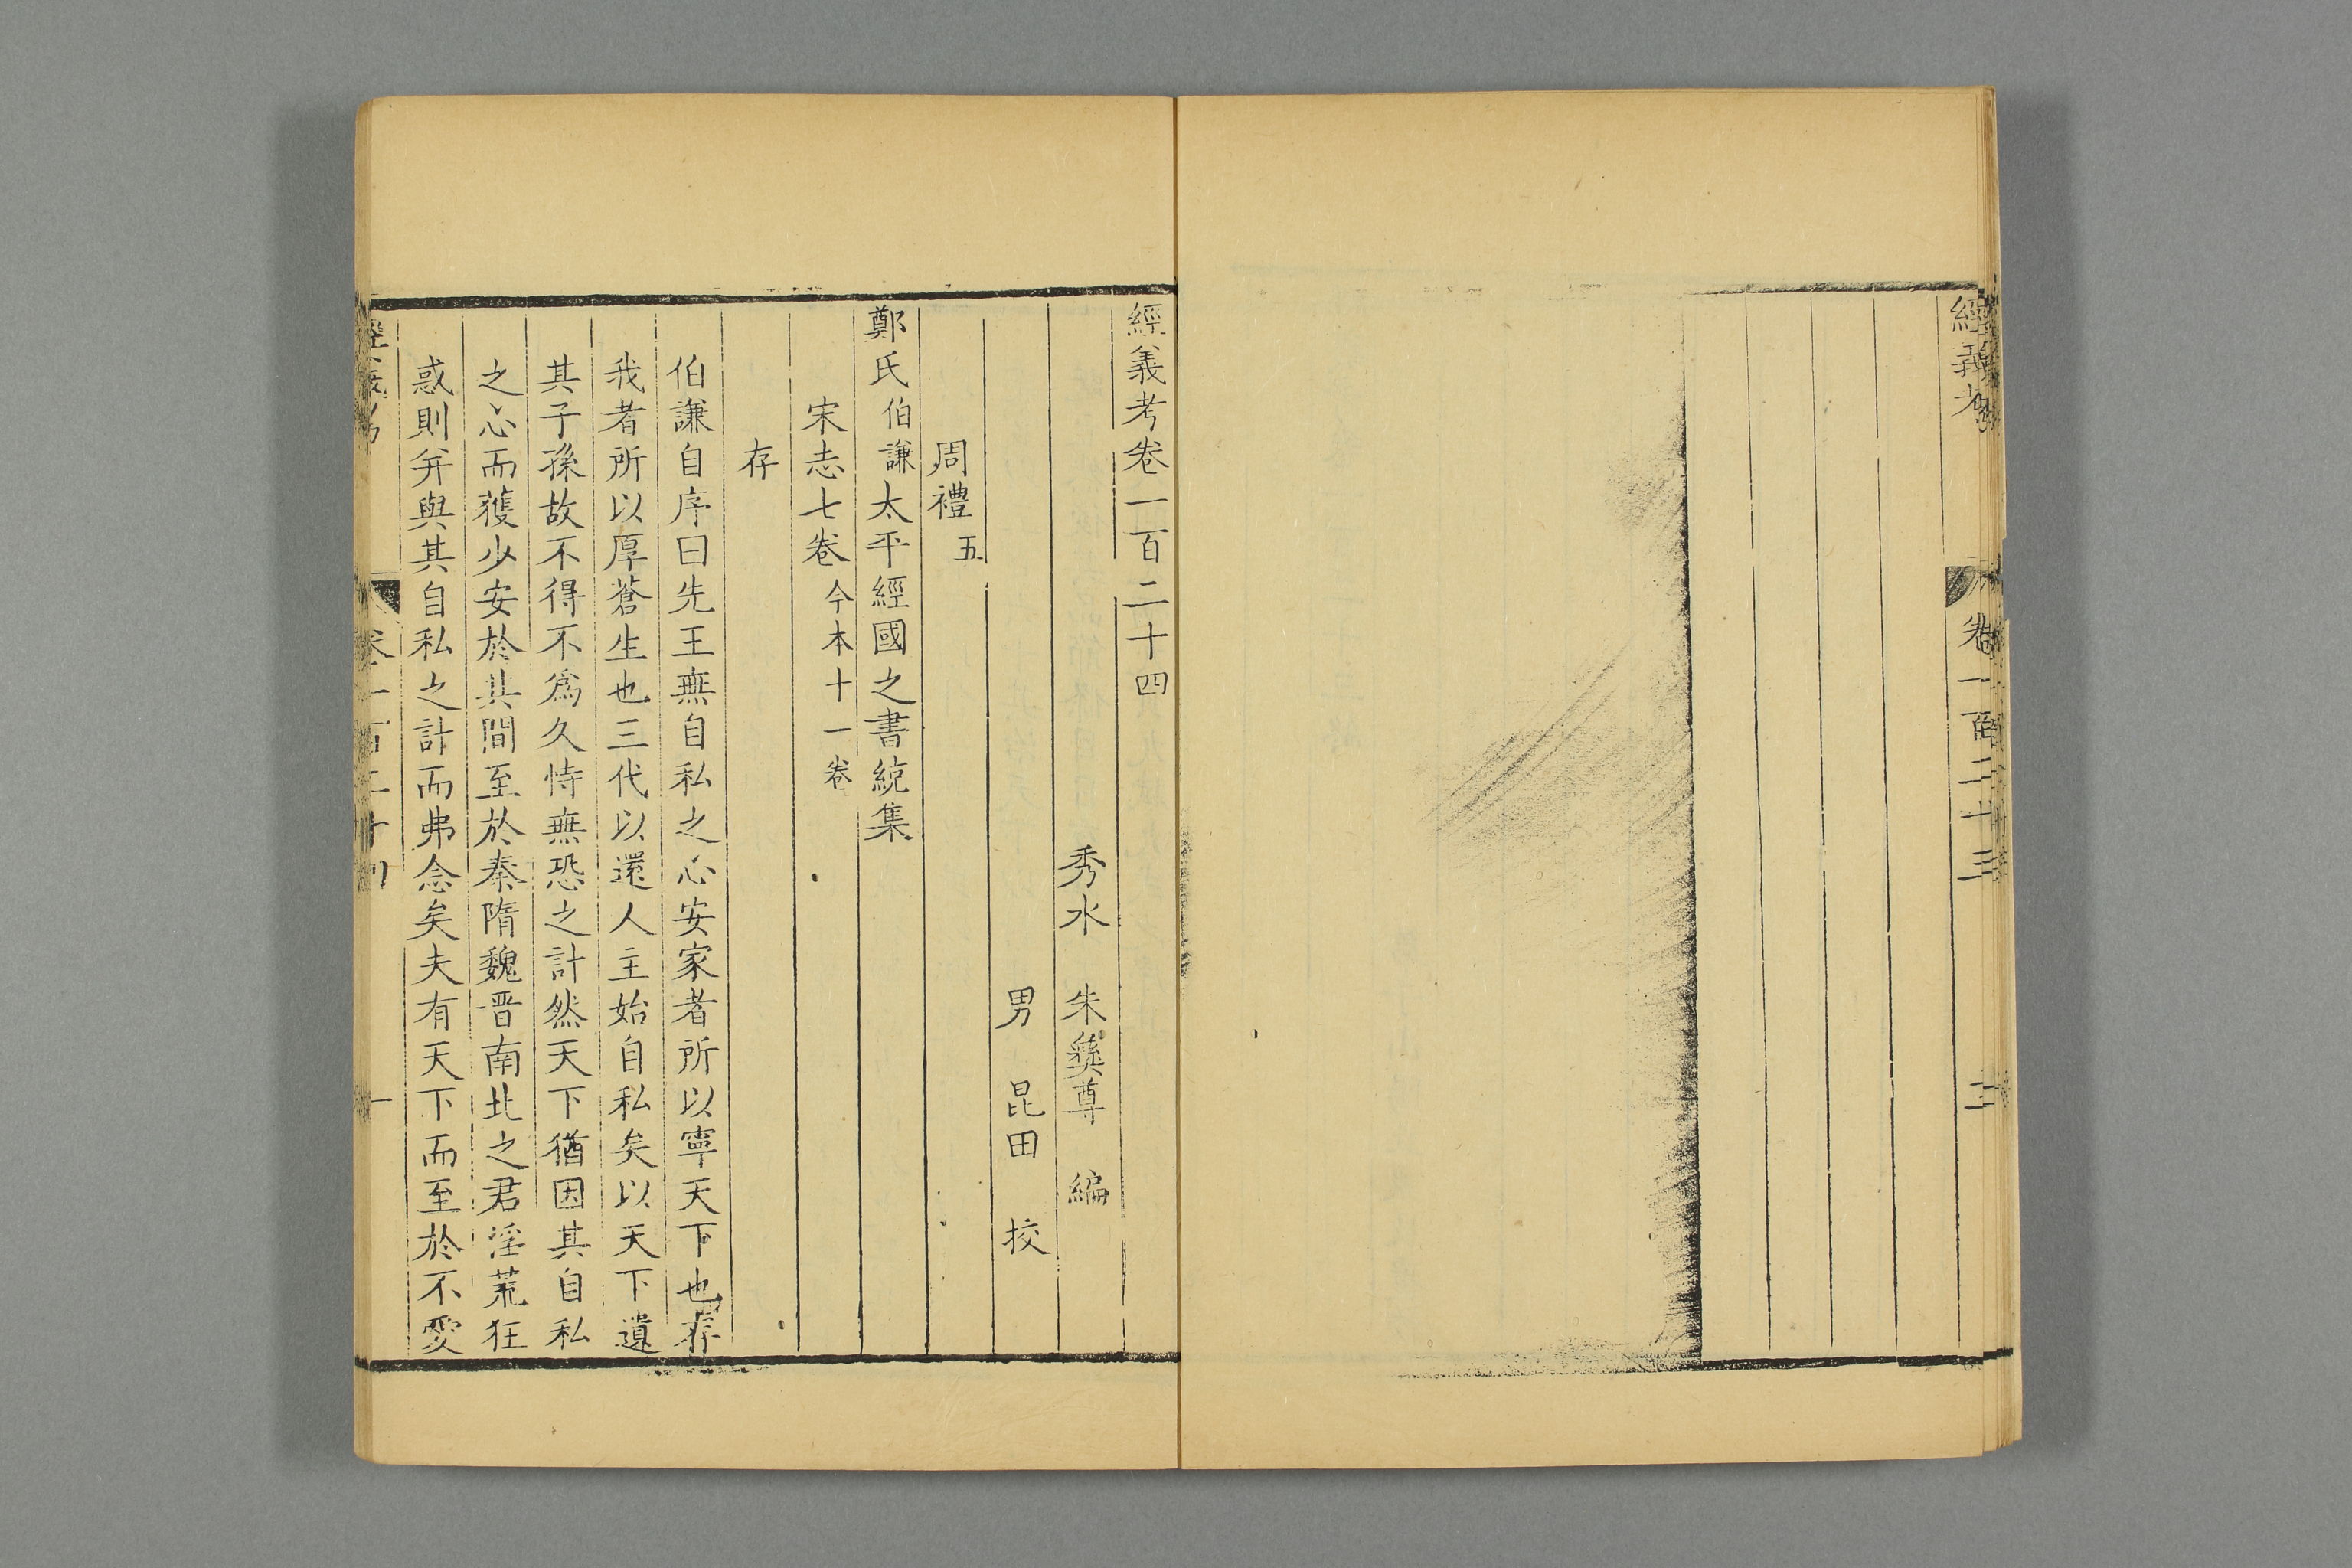 經義考
卷一百二十三
三
經義考卷一百二十四
秀水 朱彝尊 編
男 昆田 挍
周禮五
鄭氏伯謙太平經國之書統集
宋志七卷今本十一卷
存
伯謙自序曰先王無自私之心安家者所以寧天下也存
我者所以厚蒼生也三代以還人主始自私矣以天下遺
其子孫故不得不爲久恃無恐之計然天下猶因其自私
之心而獲少安於其間至於秦隋魏晋南北之君淫荒狂
惑則并與其自私之計而弗念矣夫有天下而至於不愛
卷一百二十四
一